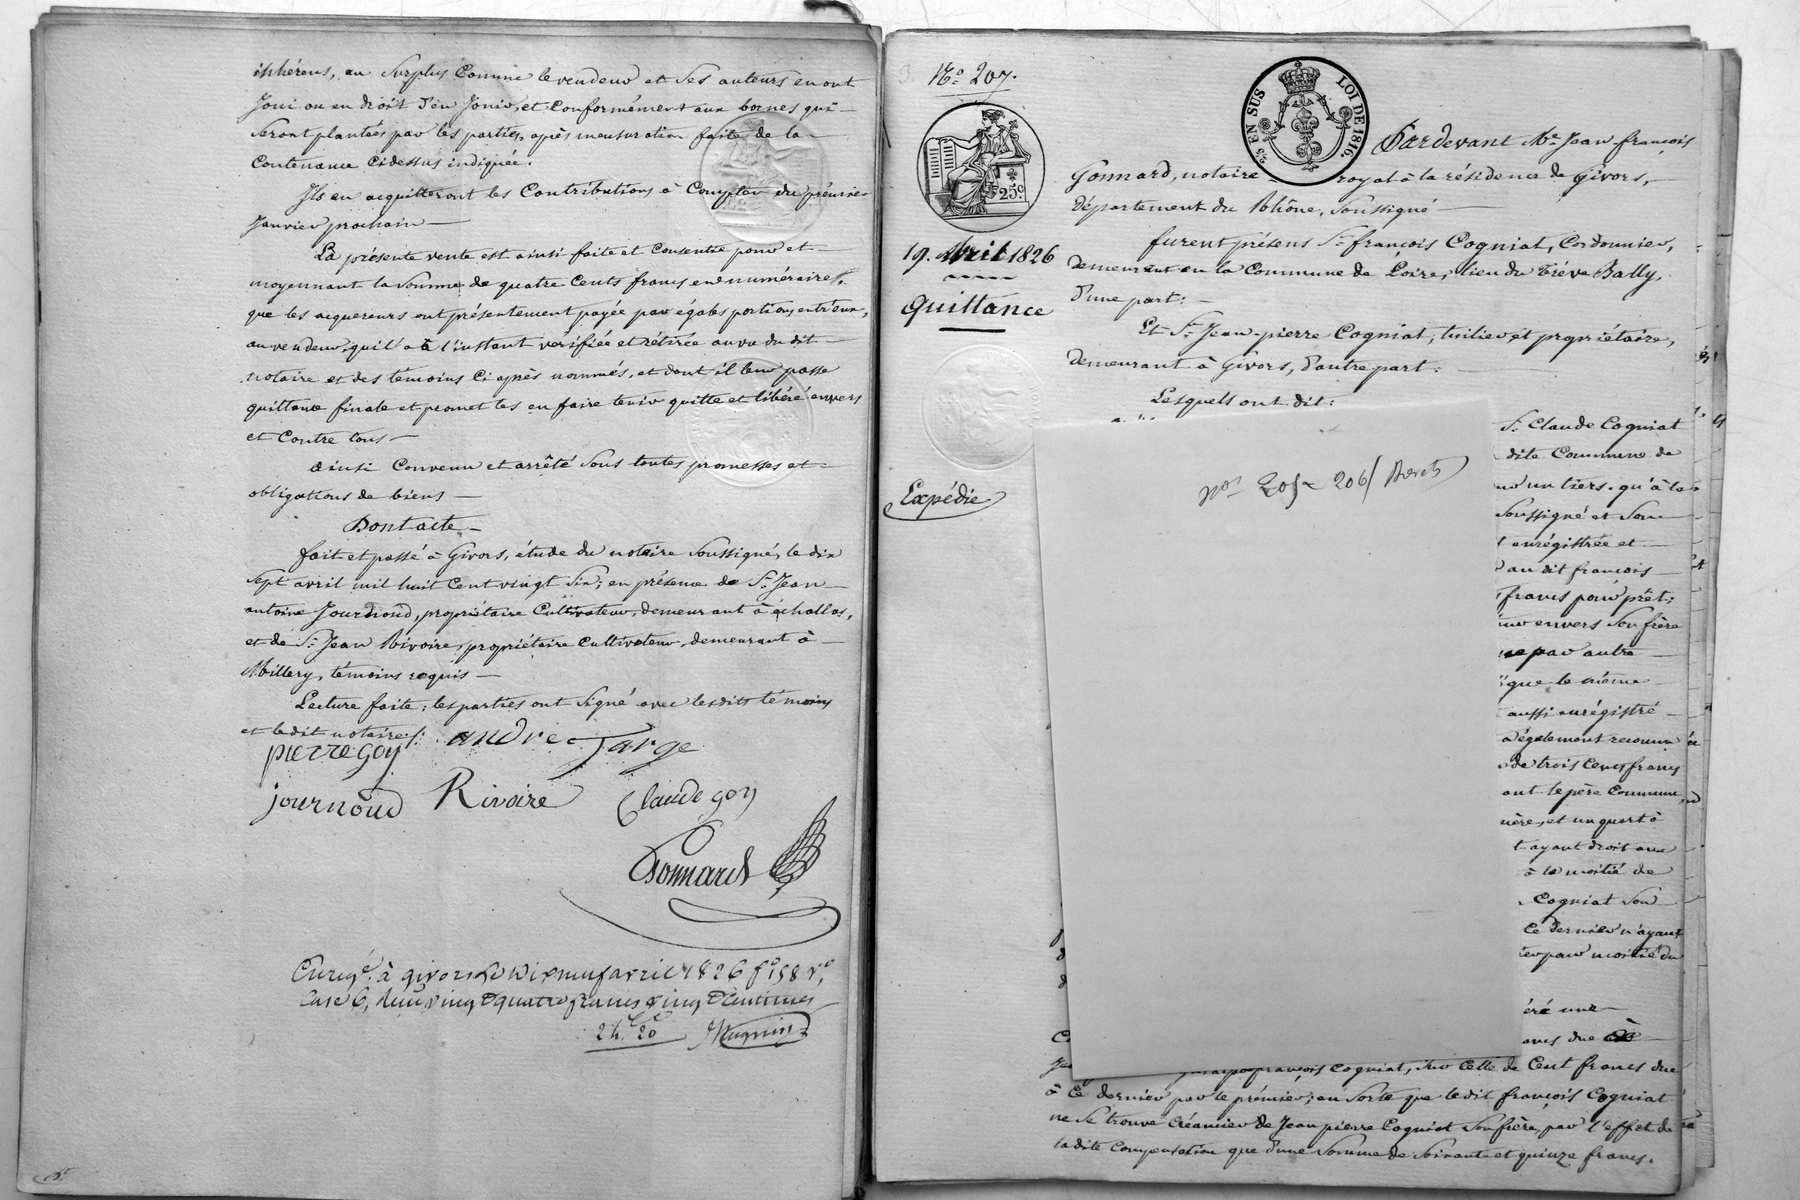 inhérens, au surplus comme le vendeur et ses auteurs en ont
joui ou eu droit d'en jouir, et conformément aux bornes qui
seront plantées par les parties, après mensuration faite de la
contenance ci dessus indiquée.
Ils en acquitteront les contributions à compter du prémier
janvier prochain
La présente vente est ainsi faite et consentie pour et
moyennant la somme de quatre cents francs en numéraire,
que les acquereurs ont présentement payée par égales portions entr'eux,
au vendeur, qui l'a à l'instant vérifiée et rétirée au vu du dit
notaire et des témoins ci après nommés, et dont il leur passe
quittance finale et promet les en faire tenir quitte et libéré envers
et contre tous
ainsi convenu et arrêté sous toutes promesses et
obligations de biens
Dont acte
fait et passé à Givors, étude du notaire soussigné, le dix
sept avril mil huit cent vingt six; en présence de Sr. Jean
antoine Journoud, propriétaire cultivateur, demeurant à échallas,
et de Sr. Jean Rivoire, propriétaire cultivateur demeurant à
Millery, témoins requis
Lecture faite; les parties ont signé avec les dits témoins
et le dit notaire
pierre goy andre Farge
journoud Rivoire Claude goy
Gonnard
Enregé. à givors le dix neuf avril 1826 fo. 158 Vo.
case 6, reçu vingt quatre francs vingt centimes
24f 20c
No. 207.
25 EN SUS LOI DE 1816.
25c.
19. Avril 1826
Quittance
Expédié
Pardevant Me. Jean françois
Gonnard, notaire royal à la résidence de Givors,
département du Rhône, soussigné
furent présens Sr. françois Cogniat, Cordonnier,
demeurant en la Commune de Loire, lieu du Trève Bally,
d'une part;
Et Sr. Jean-pierre Cogniat, tuilier et propriétaire,
demeurant à Givors, d'autre part.
Lesquels ont dit:
nos 205 206
Sr. Claude Cogniat
dite Commune de
un tiers. qu'à
soussigné et son
enrégistrée et
au dit françois
francs pour prêt;
envers son frère
par autre
que le même
aussi enrégistré
a également reconnu
de trois cents francs
ont le père commun,
et un quart à
ayant droit aux
à la moitié de
Cogniat son
ce dernier n'ayant
pour moitié du
une
due
françois Cogniat, sur celle de Cent francs due
à ce dernier par le prémier; en sorte que le dit françois Cogniat
ne se trouve créancier de Jean pierre Cogniat son frère, par l'effet de
la dite compensation que d'une somme de soixante et quinze francs.